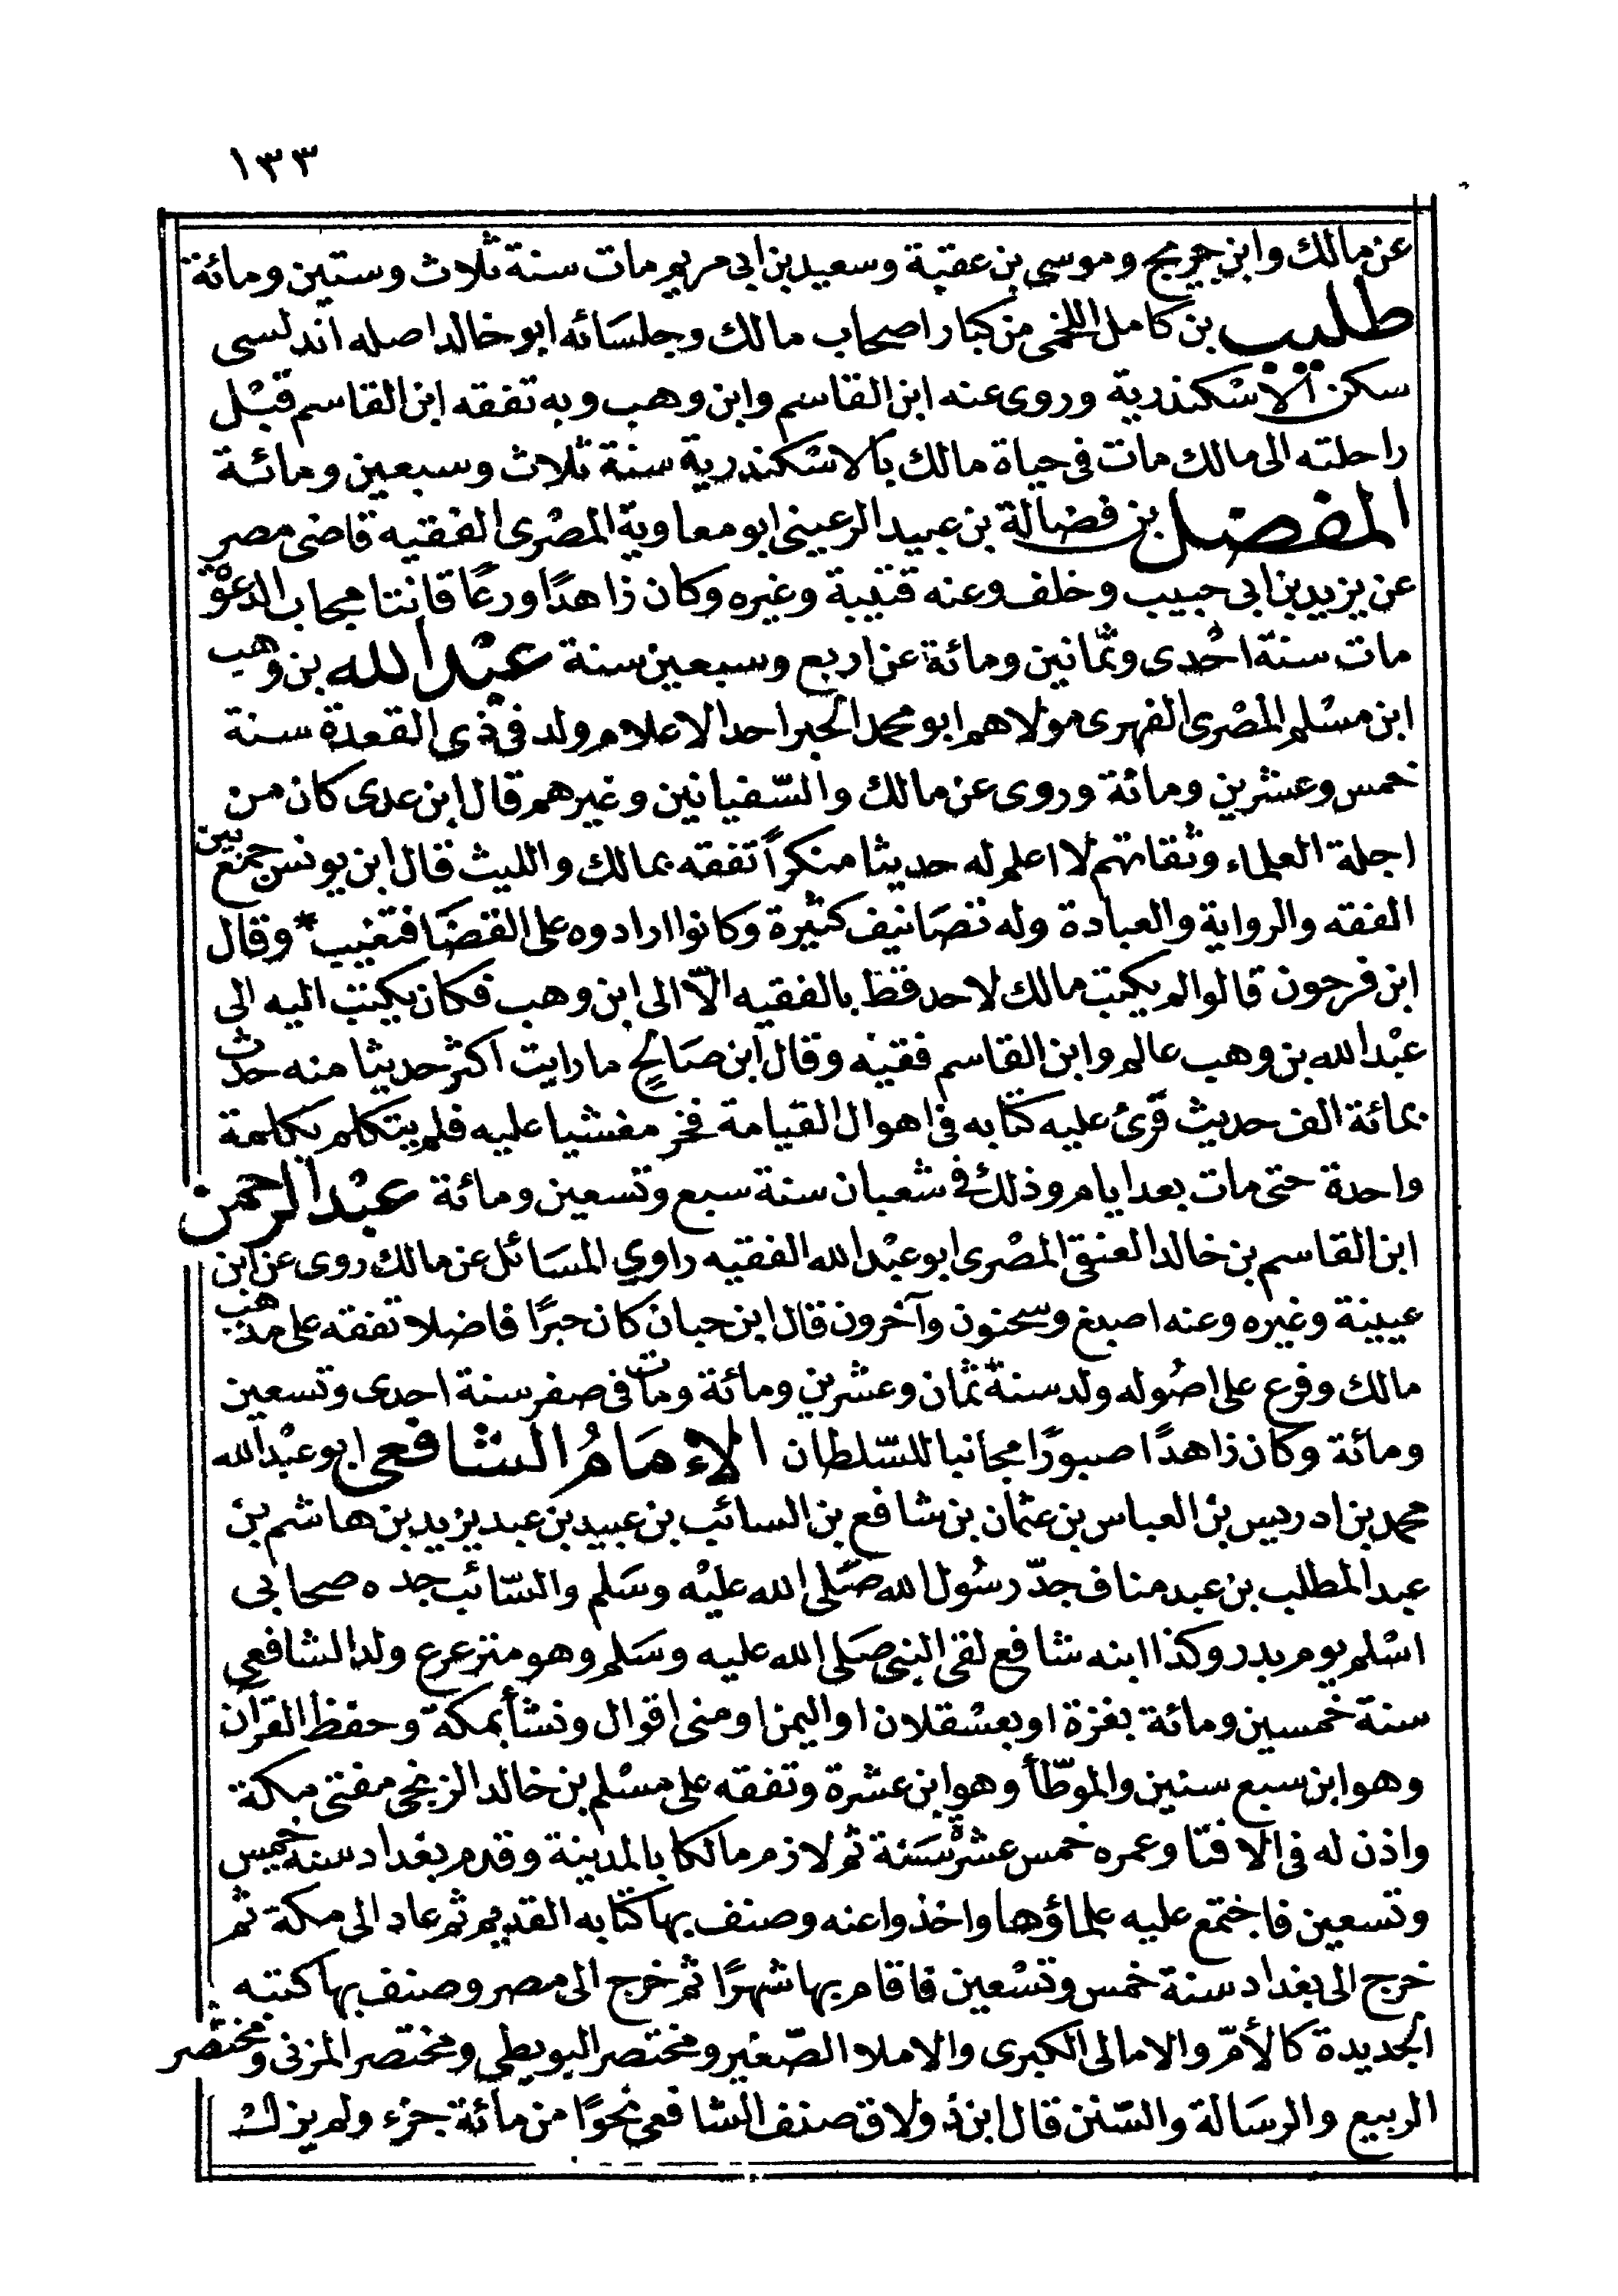 ١٣٣
عن مالك وابن جريج وموسى بن عقبة وسعيد بن ابى مريم مات سنة ثلاث وستين ومائة
طليب بن كامل اللخمى من كبار اصحاب مالك وجلسَائه ابو خالد اصله اندلسى
سكن الاسْكندرية وروى عنه ابن القاسم وابن وهب وبه تفقه ابن القاسم قبْل
راحلته الى مالك مات فى حياة مالك بالاسْكندرية سنة ثلاث وسبعين ومائة
المفضل بن فضالة بن عبيد الرعينى ابو معاوية المصْرى الفقيه قاضى مصر
عن يزيد بن ابى حبيب وخلف وعنه قتيبة وغيره وكان زاهدًا ورعًا قانتا مجاب الدعوْة
مات سنة احْدى وثمانين ومائة عن اربع وسبعين سنة عبْد الله بن وهب
ابن مسْلم المصْرى الفهرى مولاهم ابو محمد الحبر احد الاعلام ولد فى ذى القعدة سنة
خمس وعشرين ومائة وروى عن مالك والسّفيانين وغيرهم قال ابن عدى كان من
اجلة العلماء وثقاتهم لا اعلم له حديثا منكراً تفقه بمالك والليث قال ابن يونس جمع بين
الفقه والرواية والعبادة وله تصَانيف كثيرة وكانوا ارادوه على القضَا فتغيب * وقال
ابن فرحون قالوا لم يكتب مالك لاحد قط بالفقيه الّا الى ابن وهب فكان يكتب اليه الى
عبْد الله بن وهب عالم وابن القاسم فقيْه وقال ابن صَالحٍ ما رايت اكثر حديثا منه حدث
بمائة الف حديث قرئ عليه كتابه فى اهوال القيامة فخر مغشيا عليه فلم يتكلم بكلمة
واحدة حتى مات بعد ايام وذلك فى شعبان سنة سبع وتسعين ومائة عبْد الرحمن
ابن القاسم بن خالد العتقى المصْرى ابو عبْد الله الفقيه راوي المسَائل عن مالك روى عن ابن
عيينة وغيره وعنه اصبغ وسحنون وآخرون قال ابن حبان كان حبرًا فاضلا تفقه على مذهب
مالك وفرع على اصُوله ولد سنة ثمان وعشرين ومائة ومات فى صفر سنة احدى وتسعين
ومائة وكان زاهدًا صبورًا مجانبا للسّلطان الإمَامُ الشافعى ابو عبْد الله
محمد بن ادريس بن العباس بن عثمان بن شافع بن السائب بن عبيد بن عبد يزيد بن هاشم بن
عبد المطلب بن عبد مناف جدّ رسُول الله صَلى الله عليْه وسَلم والسّائب جده صحابى
اسْلم يوم بدر وكذا ابنه شافع لقى النبى صَلى الله عليه وسَلم وهو مترعرع ولد الشافعي
سنة خمسين ومائة بغزة او بعسْقلان او اليمن او منى اقوال ونشأ بمكة وحفظ القرآن
وهو ابن سبع سنين والموطّأ وهو ابن عشرة وتفقه على مسْلم بن خالد الزنجى مفتى مكة
واذن له فى الافتا وعمره خمس عشرة سَنة ثم لازم مالكا بالمدينة وقدم بغداد سنة خمس
وتسعين فاجتمع عليه علماؤها واخذوا عنه وصنف بها كتابه القديم ثم عاد الى مكة ثم
خرج الى بغداد سنة خمس وتسْعين فاقام بها شهرًا ثم خرج الى مصر وصنف بها كتبه
الجديدة كالأمّ والامالى الكبرى والاملاء الصّغير ومختصر البويطي ومختصر المزنى ومختصر
الربيع والرسَالة والسّنن قال ابن ذولاق صنف الشافعى نحوًا من مائة جزء ولم يزل